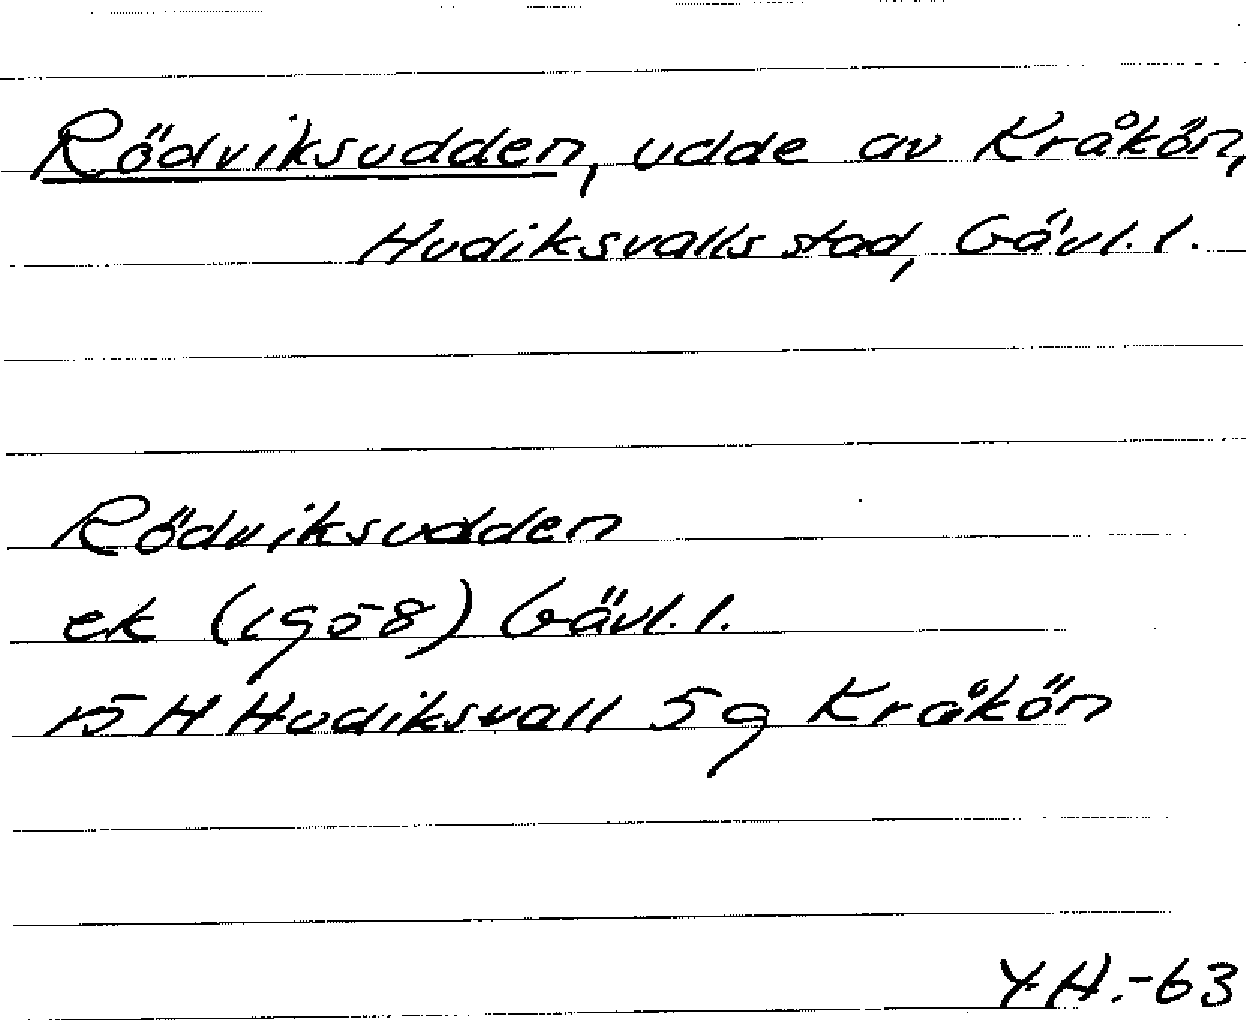 Rödviksudden, udde av Kråkön,
Hudiksvalls stad, Gävl. l.
Rödviksudden
ek (1958) Gävl. l.
15 H Hudiksvall 5 g Kråkön
Y.H.-63